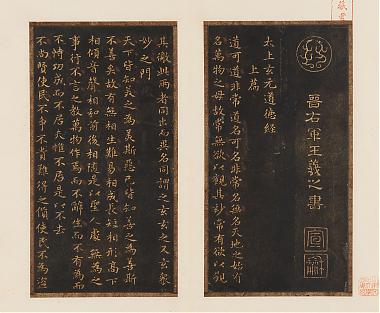 晉右軍王羲之書
宣和
太上玄元道德經
上篇
道可道非常道名可名非常名無名天地之始有
名萬物之母故常無欲以觀其妙常有欲以觀
其徼此兩者同出而異名同謂之玄玄之又玄衆
妙之門
天下皆知美之為美斯惡已皆知善之為善斯
不善矣故有無相生難易相成長短相形高下
相傾音聲相和前後相隨是以聖人處無為之
事行不言之教萬物作焉而不辭生而不有為而
不恃功成而不居夫惟不居是以不去
不尚賢使民不爭不貴難得之貨使民不為盜